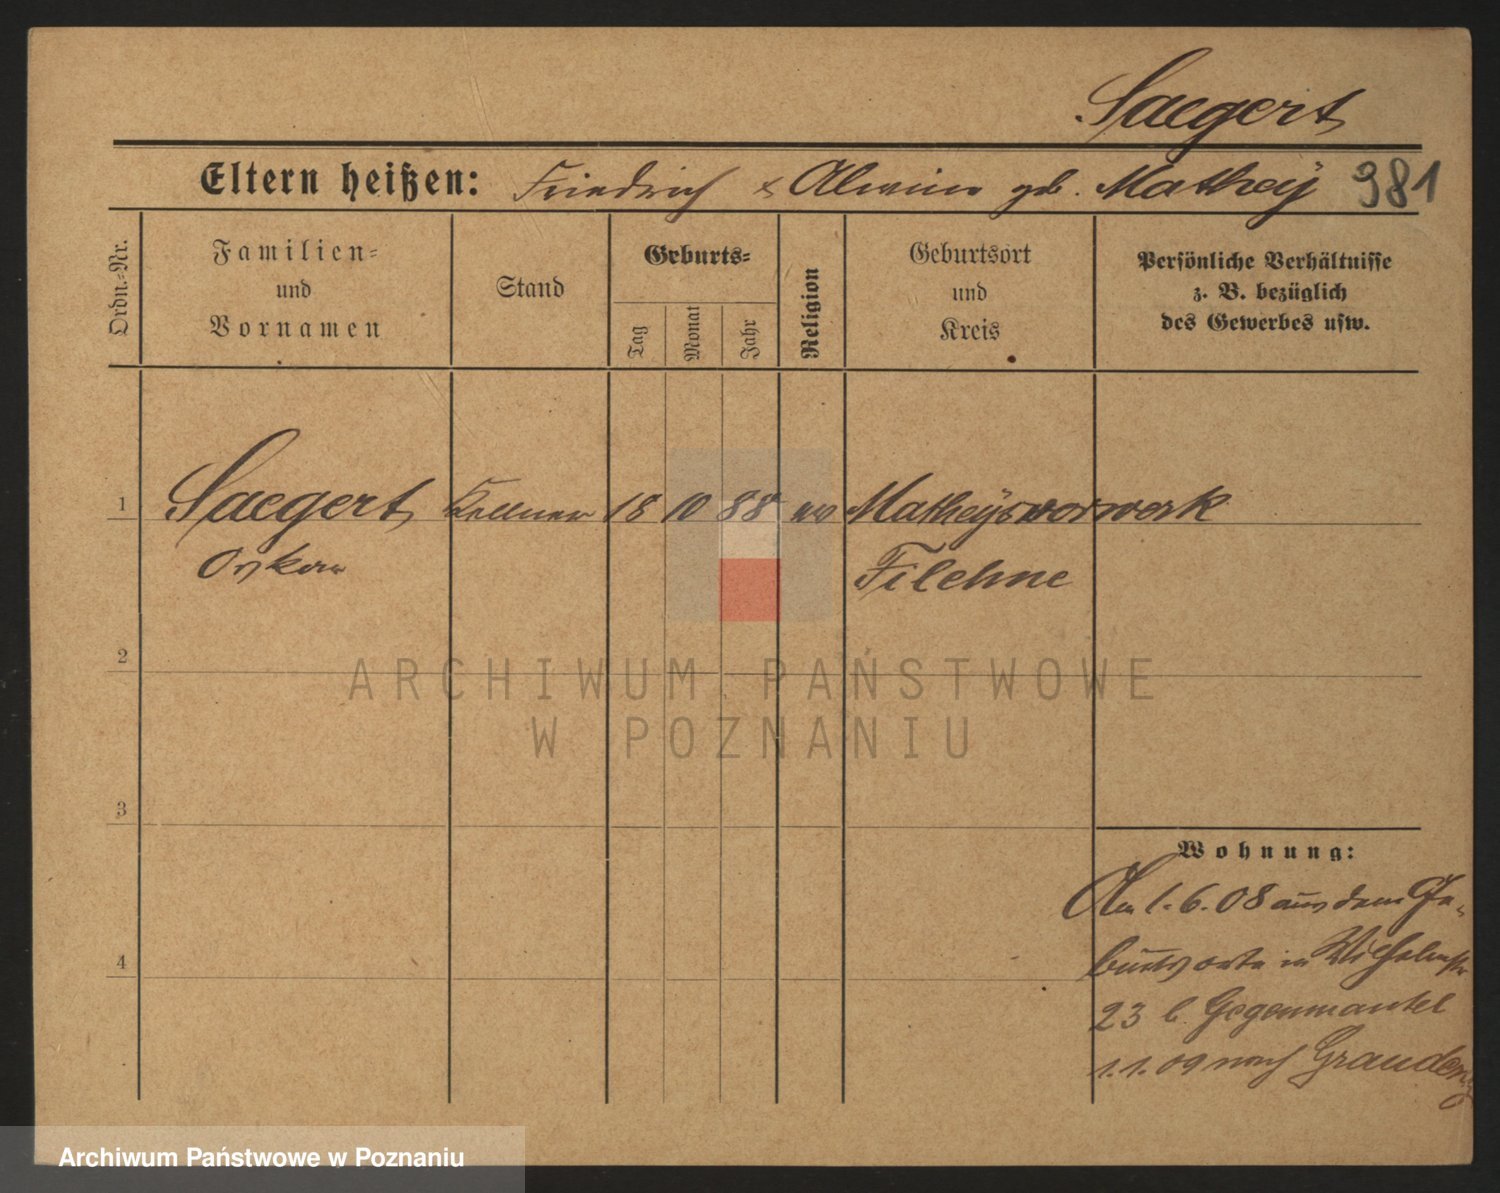 Saegert
Eltern heißen: Friedrich & Alwine geb. Mathey 981
Ordn.=Nr.
Familien=
und
Vornamen
Stand
Geburts=
Tag
Monat
Jahr
Religion
Geburtsort
und
Kreis
Persönliche Verhältnisse
z. B. bezüglich
des Gewerbes usw.
1 Saegert Kellner 18 10 88 ev Matheysvorwerk
Oskar Filehne
2
ARCHIWUM PAŃSTWOWE
W POZNANIU
3
Wohnung:
Am 1.6.08 aus dem Ge-
burtsorte in Wilhelmstr
4
23 b. Gegenmantel
1.1.09 nach Graudenz
Archiwum Państwowe w Poznaniu